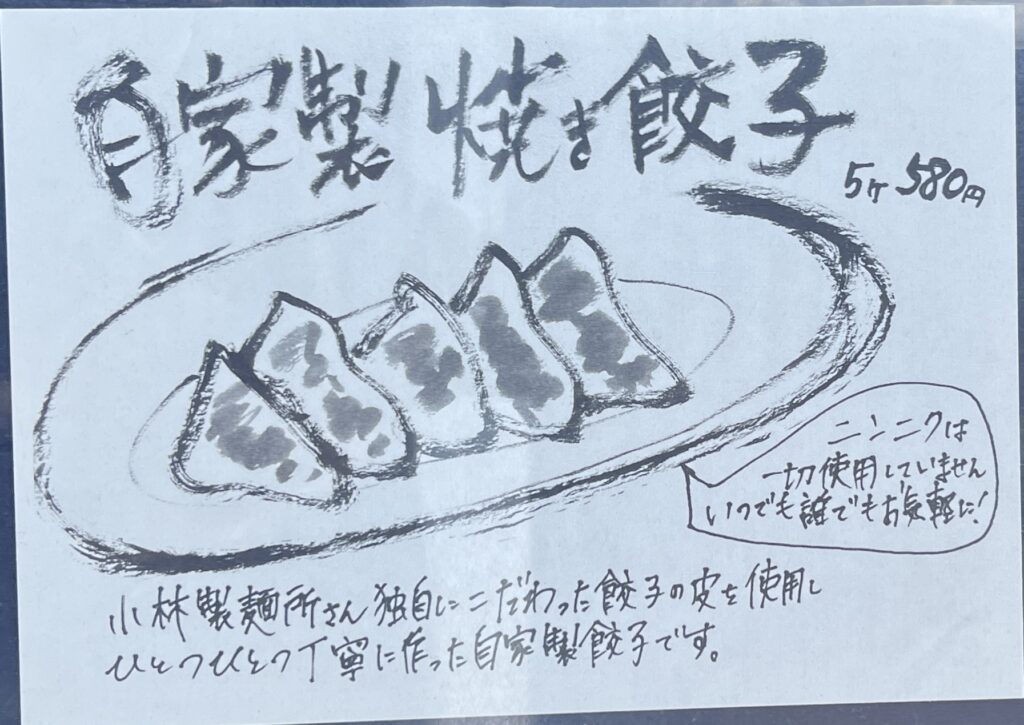 自家製 焼き餃子
5ケ 580円
ニンニクは
一切使用していません
いつでも誰でもお気軽に!
小林製麺所さん独自にこだわった餃子の皮を使用し
ひとつひとつ丁寧に作った自家製餃子です。